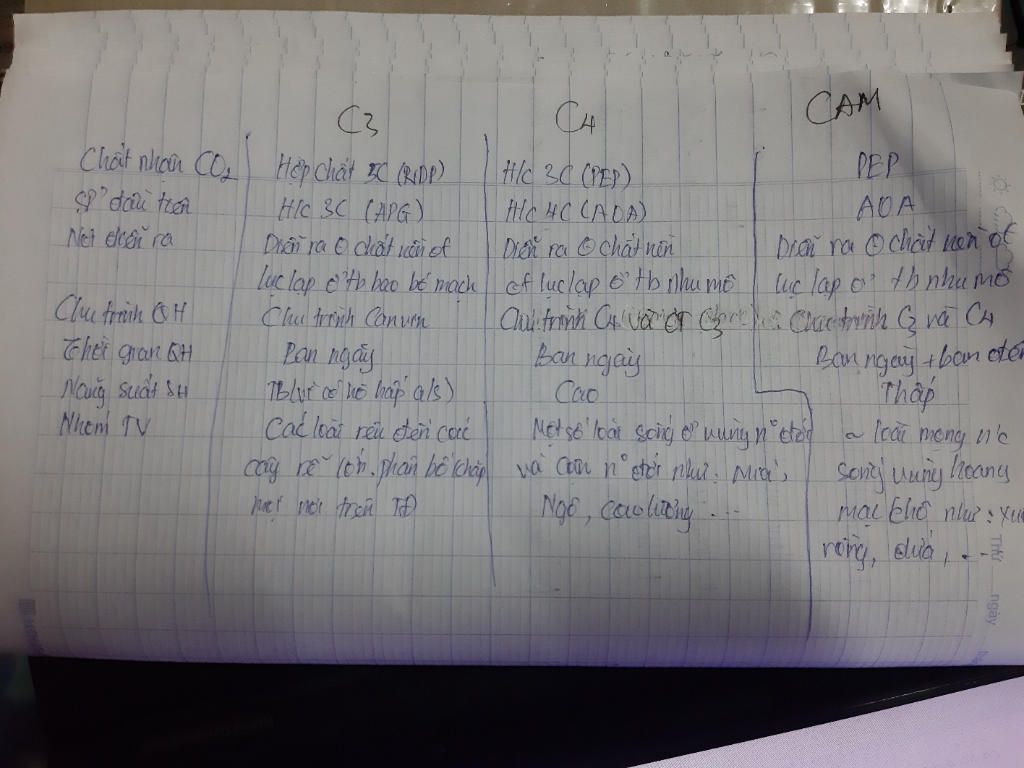 C3 C4 CAM
Chất nhận CO2 Hợp chất 5C (RiDP) H/c 3C (PEP) PEP
SP' đầu tiên H/c 3C (APG) H/c 4C (AOA) AOA
Nơi diễn ra Diễn ra chất nền of Diễn ra chất nền Diễn ra chất nền of
lục lạp ở tb bao bó mạch of lục lạp ở tb nhu mô lục lạp ở tb nhu mô
Chu trình QH Chu trình Canvin Chu trình C4 và C3 Chu trình C3 và C4
Thời gian QH Ban ngày Ban ngày Ban ngày + ban đêm
Năng suất SH TB (vì có hô hấp a/s) Cao Thấp
Nhóm TV Các loài rêu đến các Một số loài sống ở vùng nđ đới ~ loài mọng nc
cây gỗ lớn, phân bố khắp và cận nđ đới như: Mía, sống vùng hoang
mọi nơi trên TĐ Ngô, cao lương ... mạc khô như: xương
rồng, dứa, ...
Thứ
ngày